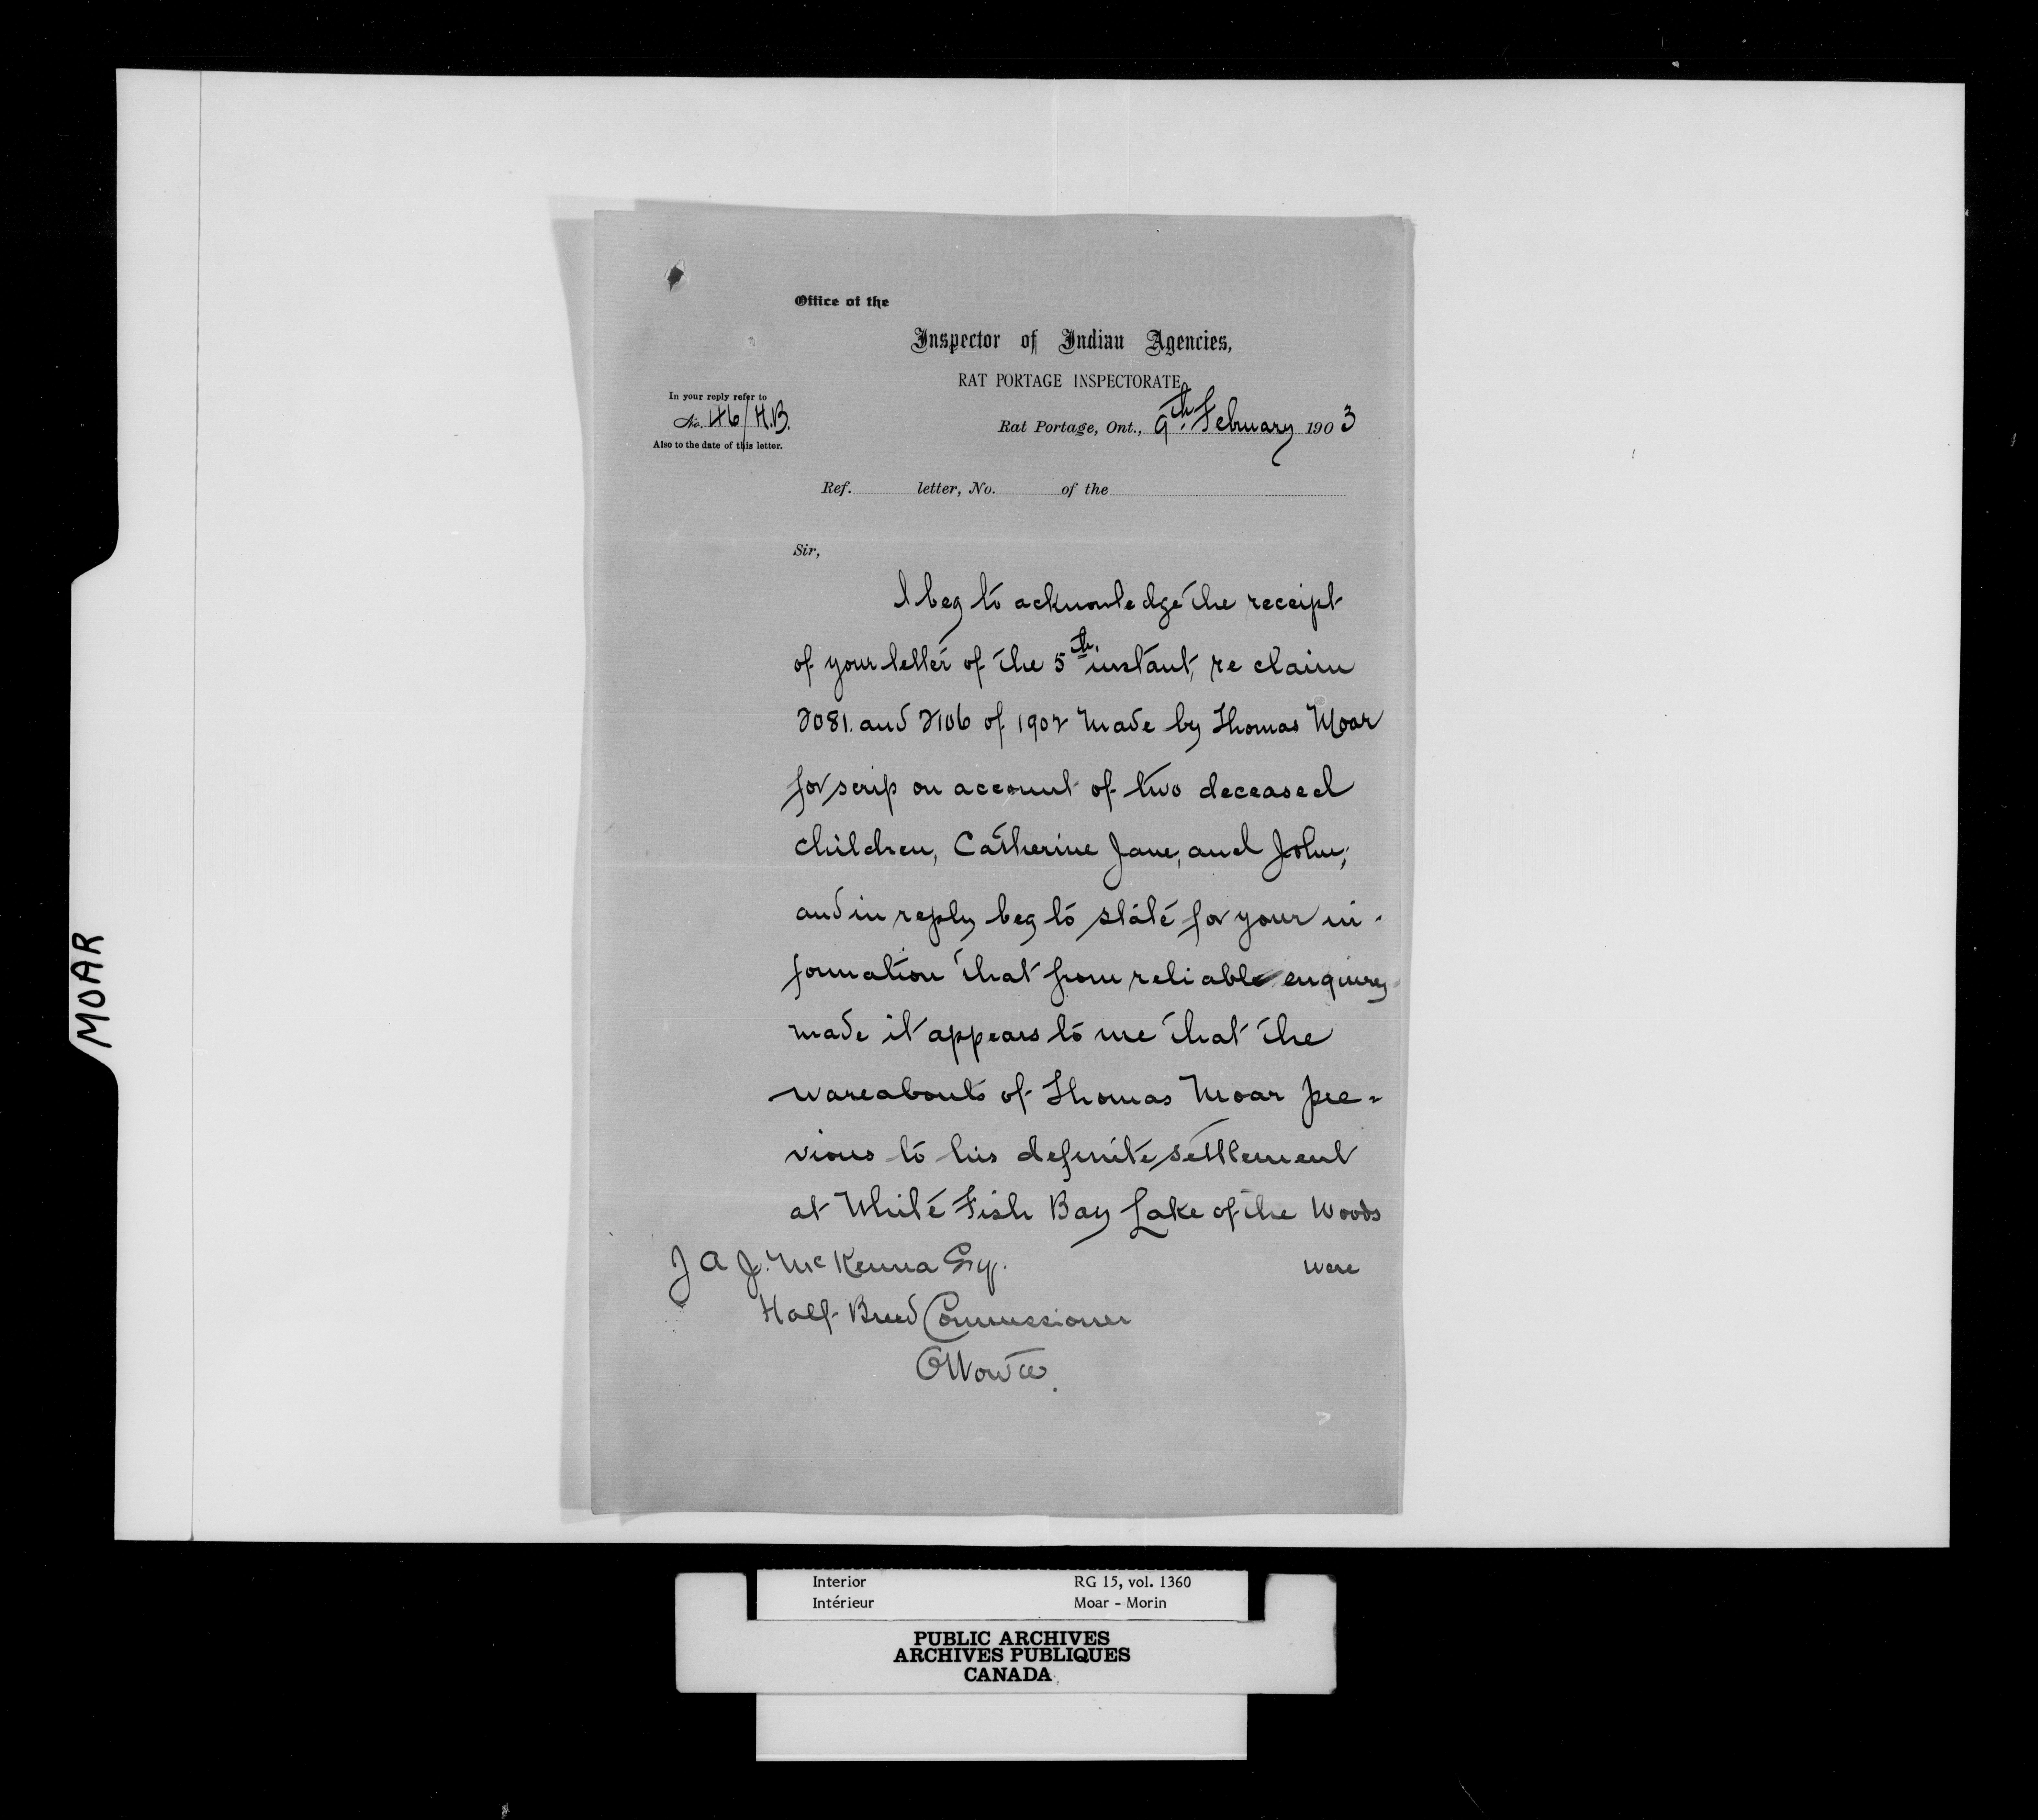 Office of the
Inspector of Indian Agencies,
RAT PORTAGE INSPECTORATE.
In your reply refer to
No. 46/H.B.
Also to the date of this letter.
Rat Portage, Ont., 9th. February 1903
Ref. letter, No. of the
Sir,
I beg to acknowledge the receipt
of your letter of the 5th. instant, re claim
2081. and 2106 of 1902 made by Thomas Moar
for scrip on account of two deceased
children, Catherine Jane, and John;
and in reply beg to state for your in-
formation that from reliable enquiry
made it appears to me that the
wareabouts of Thomas Moar pre-
vious to his definite settlement
at White Fish Bay Lake of the Woods
were
J A J. McKenna Esq.
Half-Breed Commissioner
Ottowa.
MOAR
Interior RG 15, vol. 1360
Intérieur Moar - Morin
PUBLIC ARCHIVES
ARCHIVES PUBLIQUES
CANADA